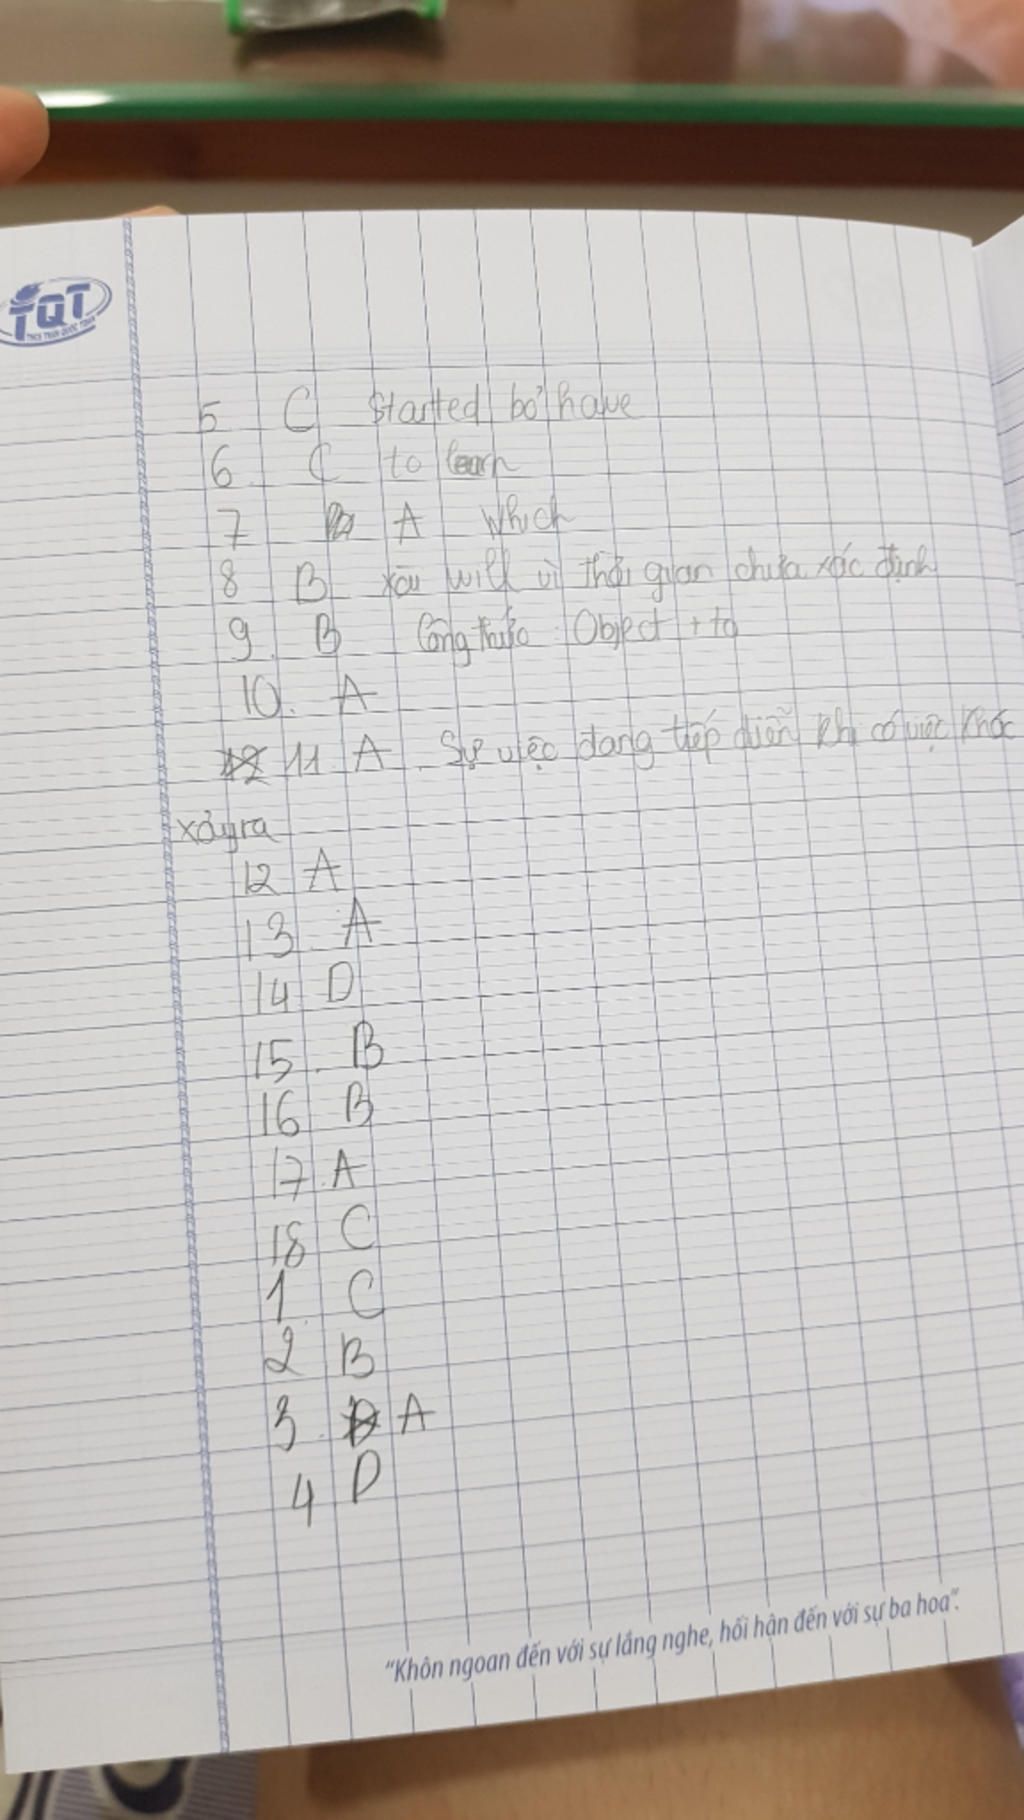 TQT
THCS TRẦN QUỐC TOẢN
5 C Started bỏ have
6 C to learn
7 A Which
8 B xài will vì thời gian chưa xác định
9. B Công thức Object + to
10. A
11 A. Sự việc đang tiếp diễn khi có việc khác
xảy ra
12 A
13 A
14 D
15. B
16 B
17. A
18 C
1 C
2 B
3. A
4 D
"Khôn ngoan đến với sự lắng nghe, hối hận đến với sự ba hoa".